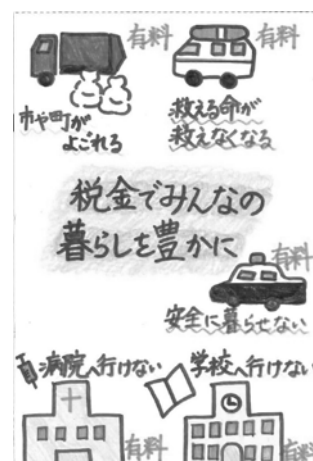 有料
有料
市や町が
よごれる
救える命が
救えなくなる
税金でみんなの
暮らしを豊かに
有料
安全に暮らせない
病院へ行けない
学校へ行けない
有料
有料